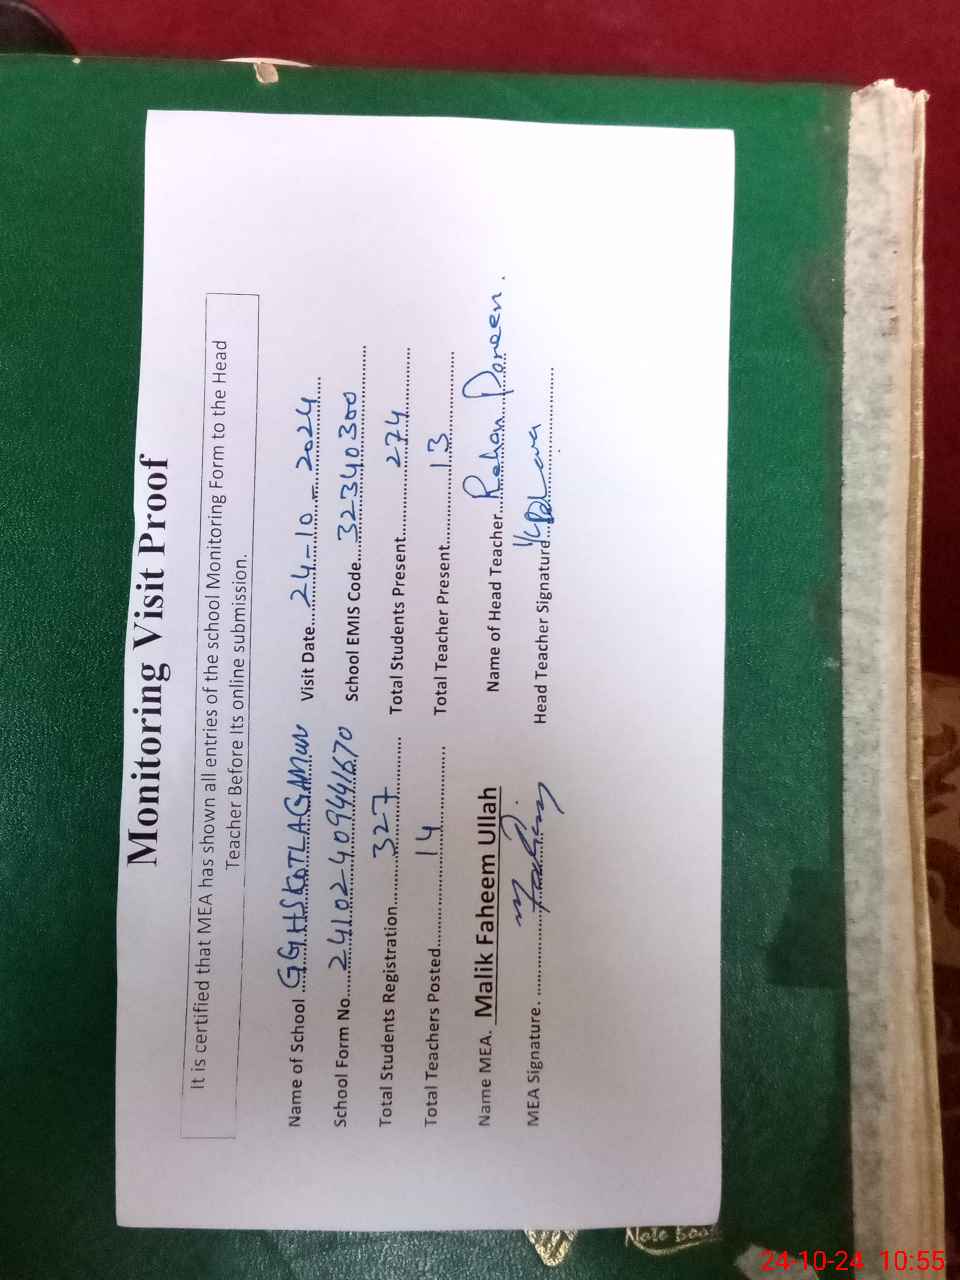 Monitoring Visit Proof
It is certified that MEA has shown all entries of the school Monitoring Form to the Head
Teacher Before Its online submission.
Name of School GGHS KOTLA GAMUN Visit Date 24-10-2024
School Form No. 24102409441670 School EMIS Code 32340300
Total Students Registration 327 Total Students Present 274
Total Teachers Posted 14 Total Teacher Present 13
Name MEA. Malik Faheem Ullah Name of Head Teacher Rehan Perveen.
MEA Signature. Head Teacher Signature
Note book
24-10-24 10:55